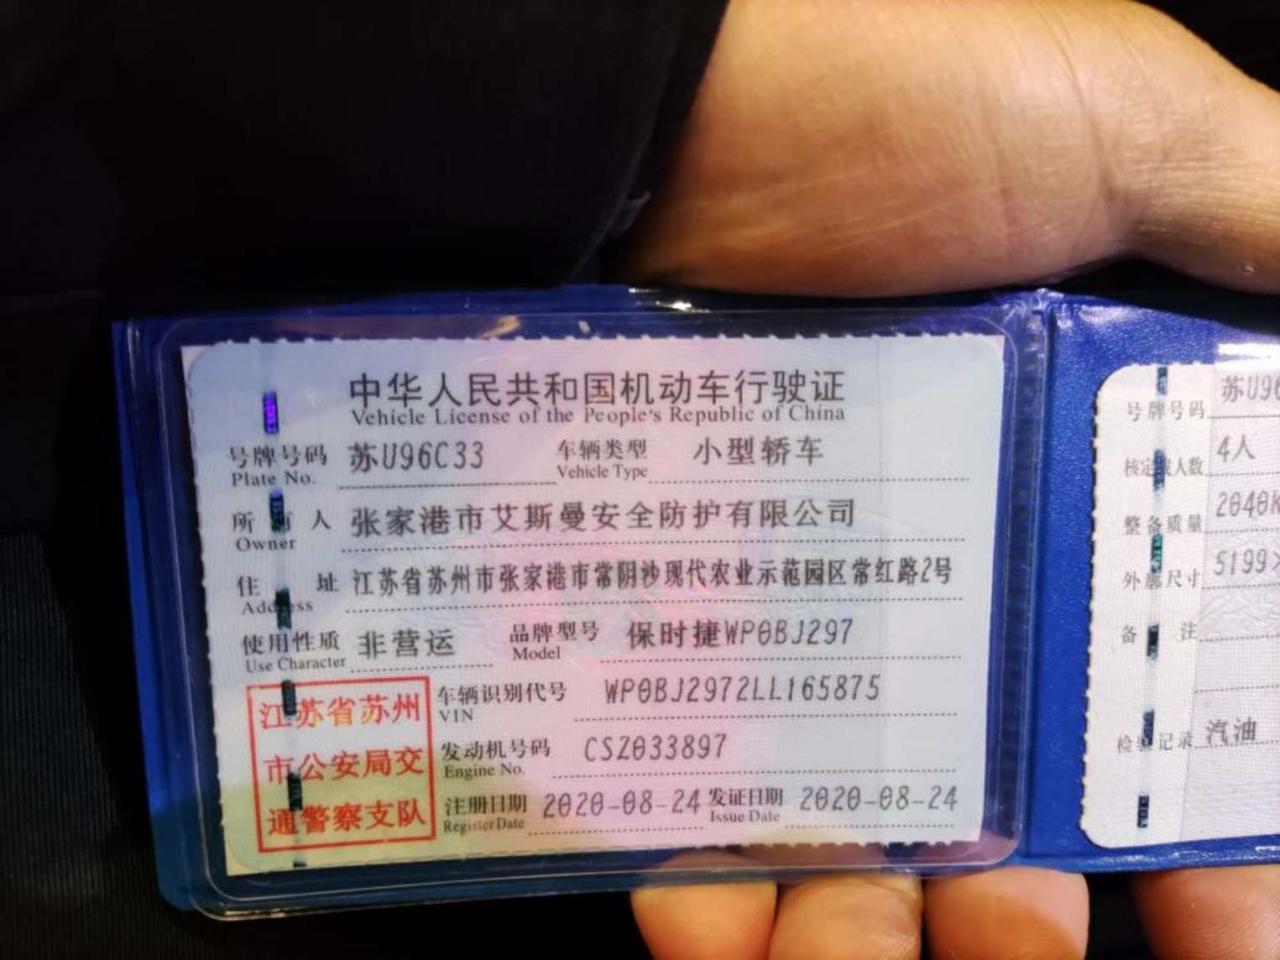 中华人民共和国机动车行驶证
Vehicle License of the People's Republic of China
号牌号码 苏U96C33 车辆类型 小型轿车
Plate No. Vehicle Type
所有人 张家港市艾斯曼安全防护有限公司
Owner
住址 江苏省苏州市张家港市常阴沙现代农业示范园区常红路2号
Address
使用性质 非营运 品牌型号 保时捷WP0BJ297
Use Character Model
江苏省苏州
市公安局交
通警察支队
车辆识别代号 WP0BJ2972LL165875
VIN
发动机号码 CSZ033897
Engine No.
注册日期 2020-08-24 发证日期 2020-08-24
Register Date Issue Date
号牌号码 苏U96
核定载人数 4人
整备质量 2040K
外廓尺寸 5199×
备注
检验记录 汽油